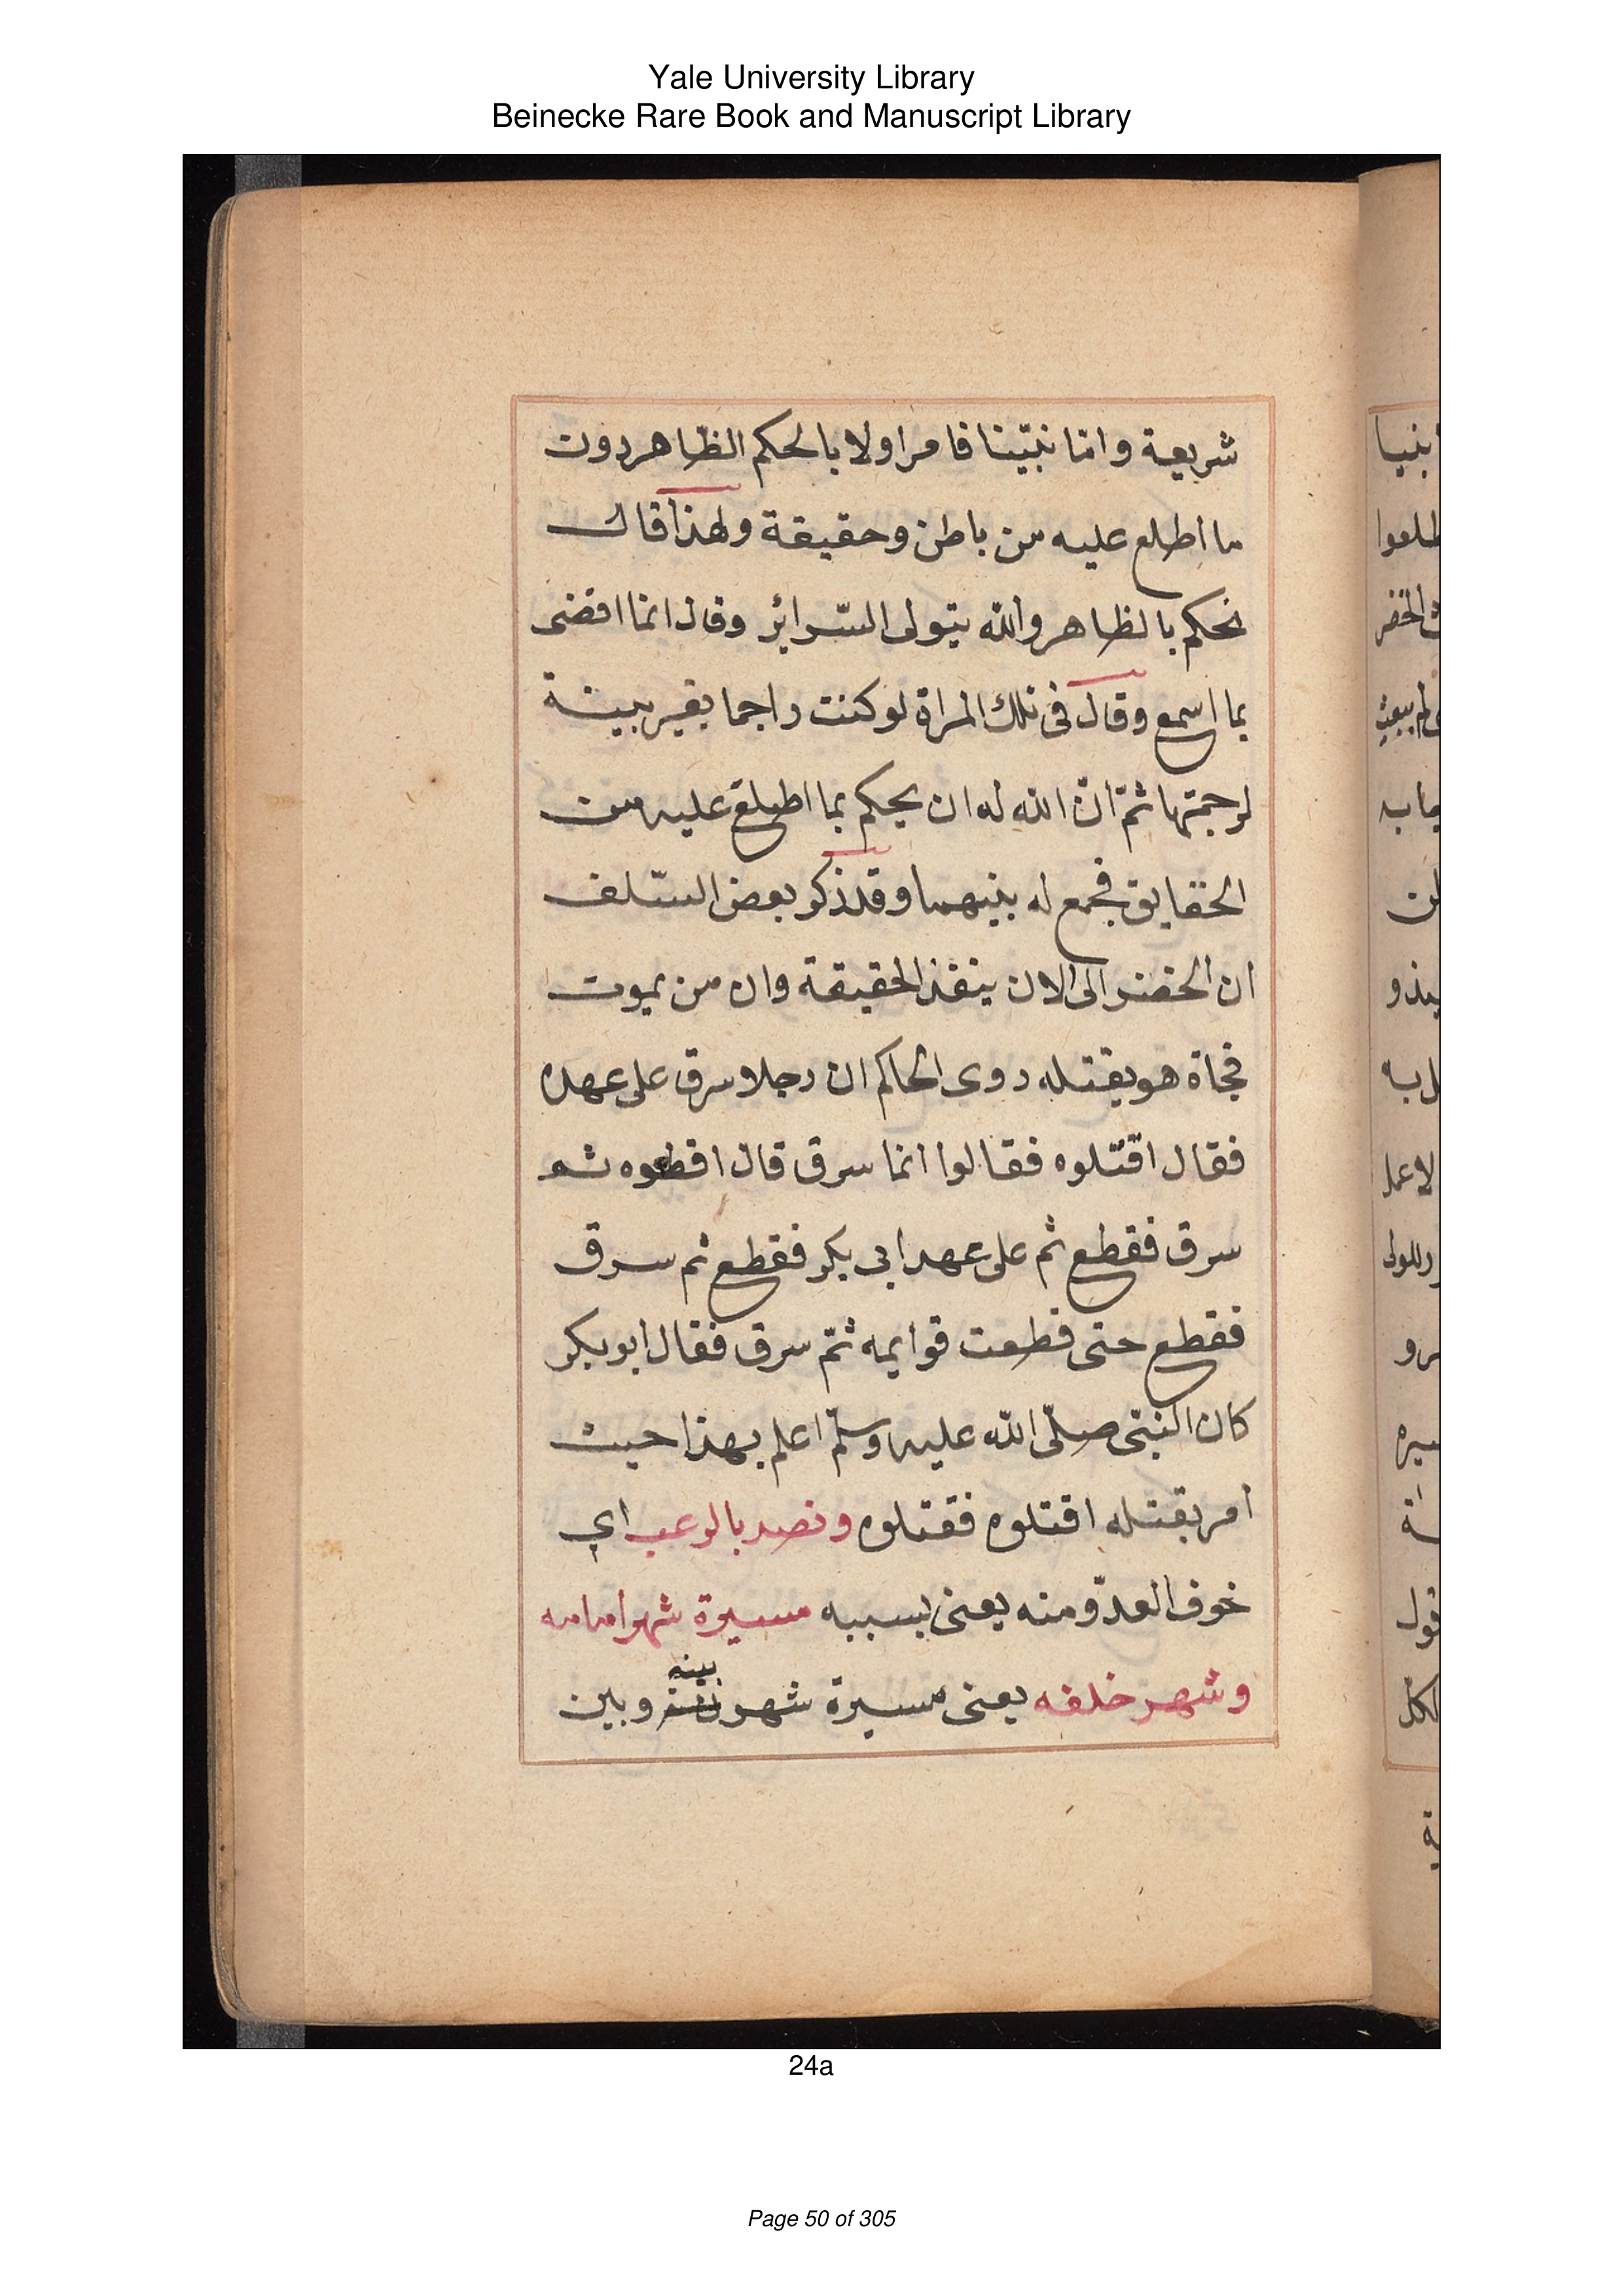 Yale University Library
Beinecke Rare Book and Manuscript Library
شريعة وامّا نبيّنا فامر اولا بالحكم الظّاهر دون
ما اطلع عليه من باطن وحقيقة ولهذا قال
نحكم بالظاهر والله يتولى السّرائر وقال انما اقضى
بما اسمع وقال فى تلك المراة لو كنت راجما بغير بينة
لرجمتها ثمّ انّ الله له ان يحكم بما اطلع عليه من
الحقايق فجمع له بينهما وقد ذكر بعض السّلف
ان الخضر الى الان ينفذ الحقيقة وان من يموت
فجاة هو يقتله روى الحاكم ان رجلا سرق على عهده
فقال اقتلوه فقالوا انما سرق قال اقطعوه ثم
سرق فقطع ثم على عهد ابى بكر فقطع ثم سرق
فقطع حتى قطعت قوايمه ثمّ سرق فقال ابو بكر
كان النبىّ صلّى الله عليه وسلّم اعلم بهذا حيث
امر بقتله اقتلوه فقتلوه ونصر بالرعب اي
خوف العدوّ منه يعنى بسببه مسيرة شهر امامه
بينه
وشهر خلفه يعنى مسيرة شهر وبين
ابنيا
طلعوا
الخضر
يبعث
لن
ل به
لا عمل
وللولى
قول
24a
Page 50 of 305